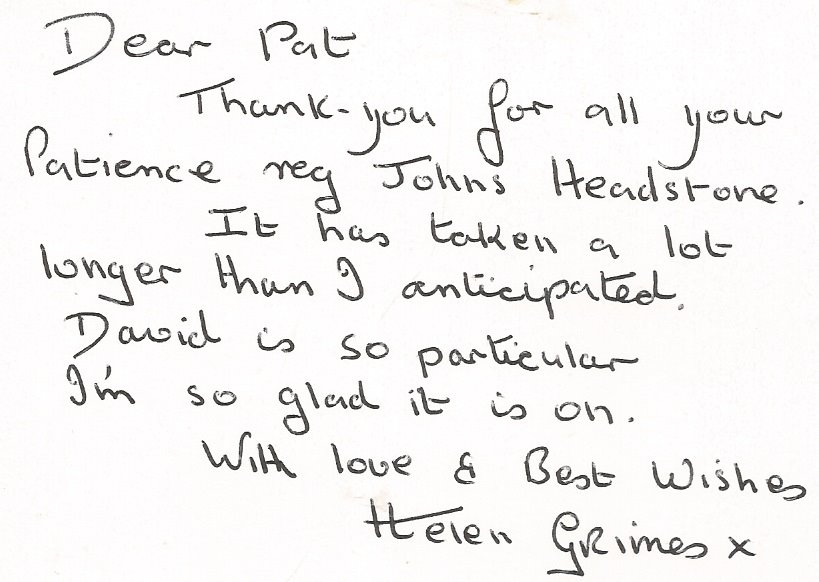 Dear Pat
Thank-you for all your
Patience reg Johns Headstone.
It has taken a lot
longer than I anticipated.
David is so particular
I'm so glad it is on.
With love & Best Wishes
Helen Grimes x